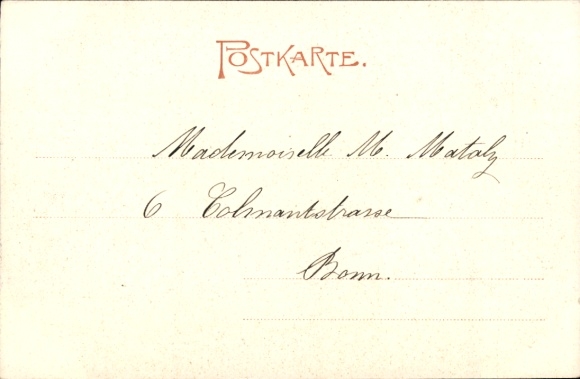 POSTKARTE.
Mademoiselle M. Mataly
6 Colmantstrasse
Bonn.